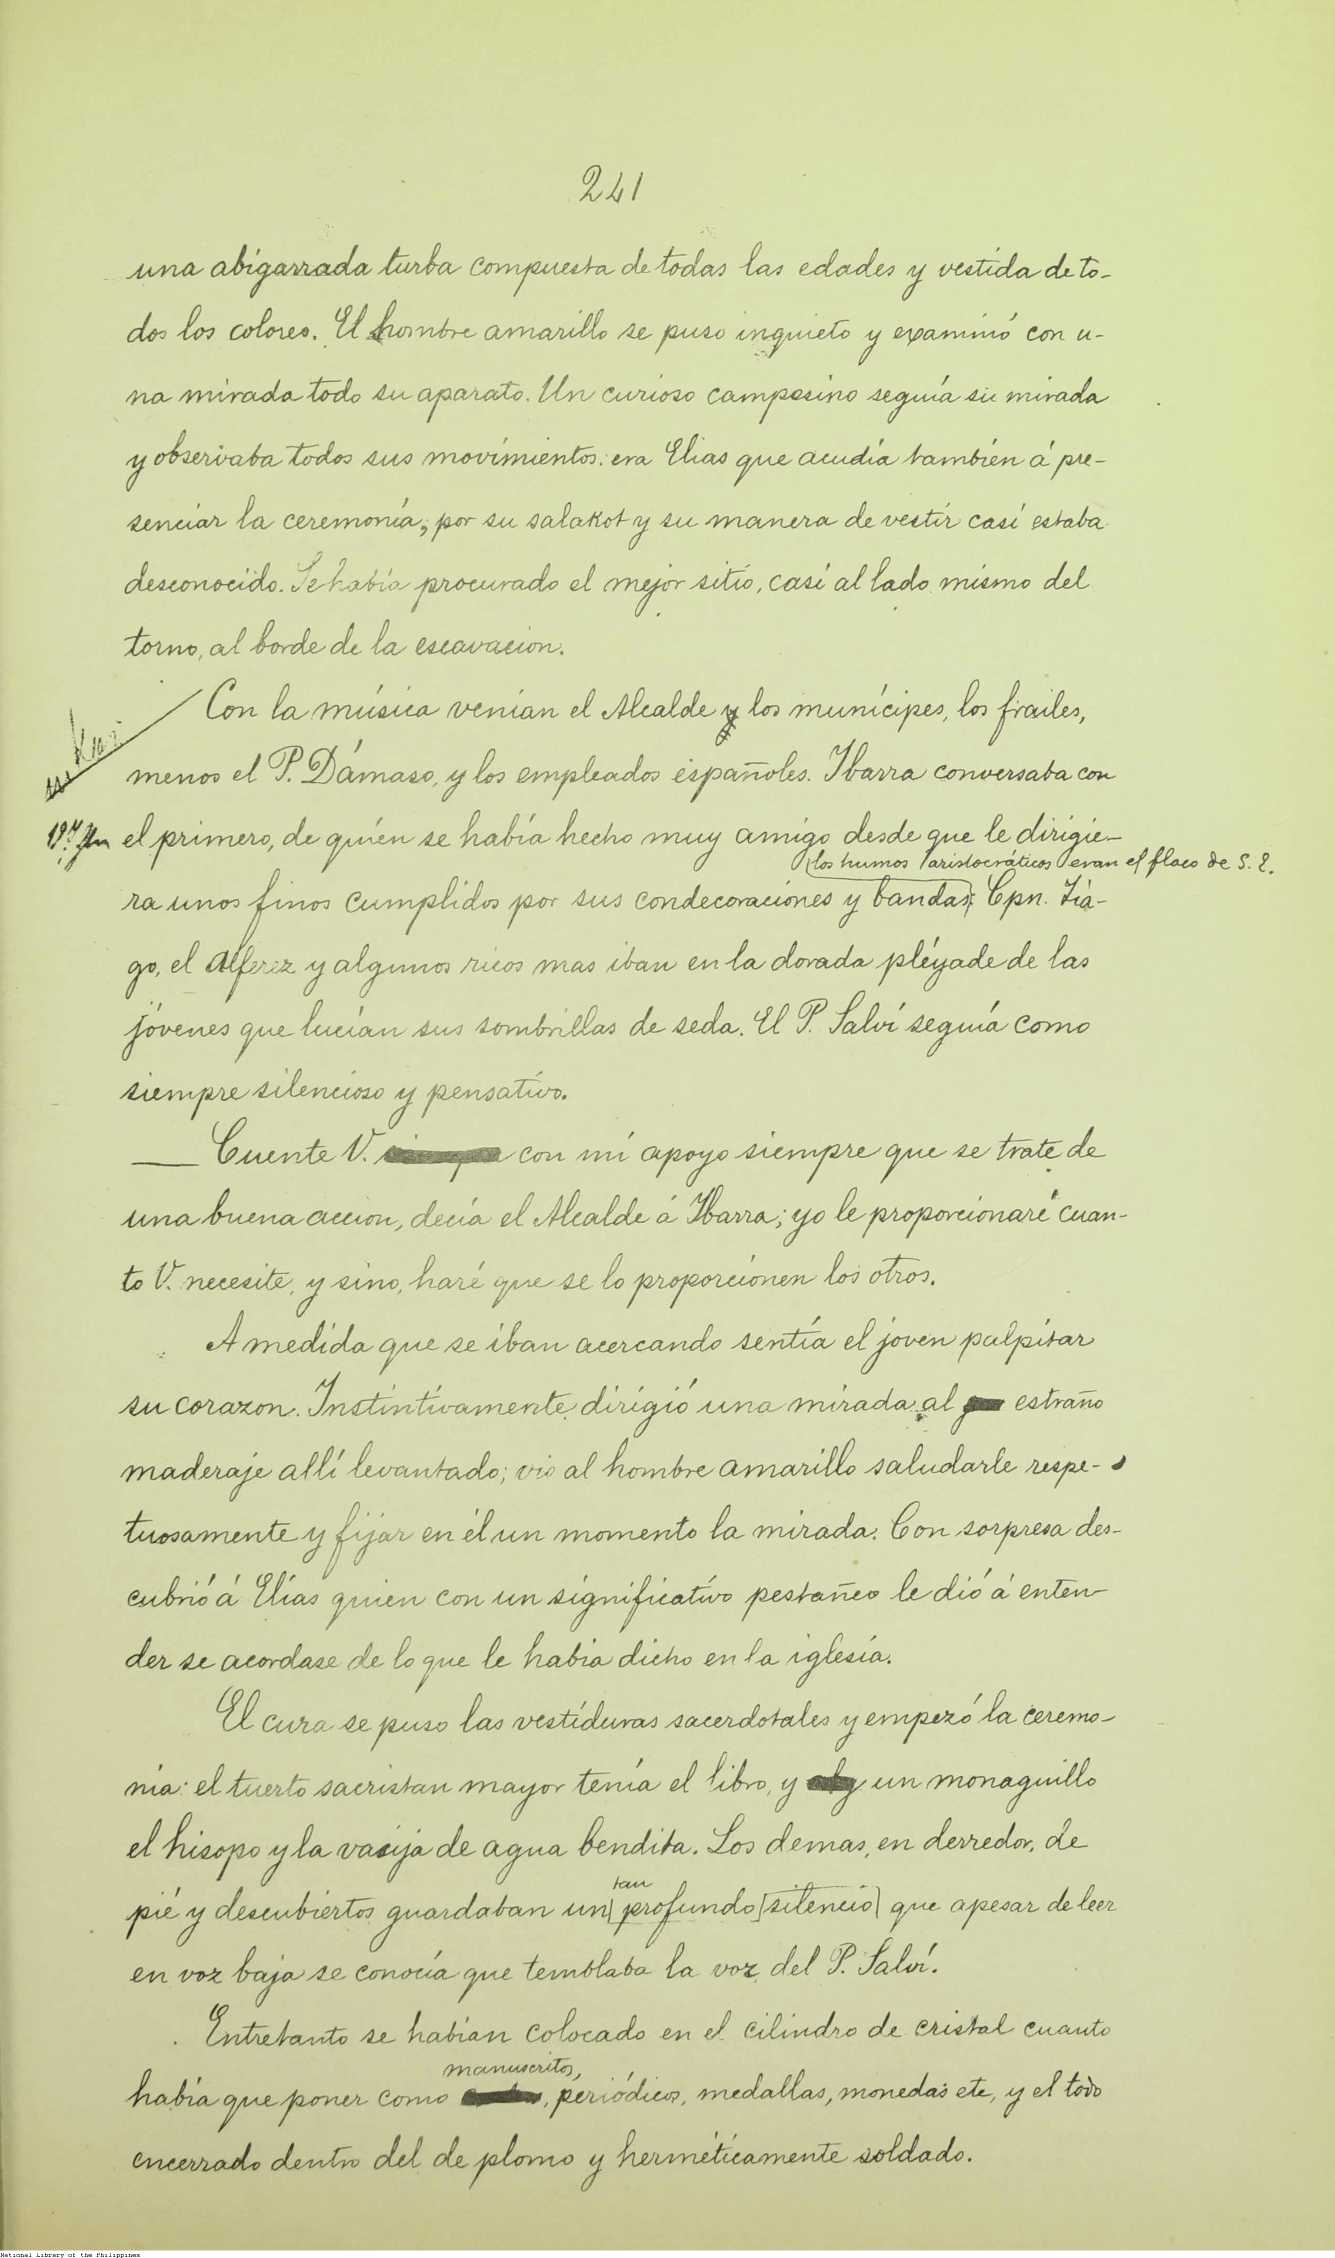 241
una abigarrada turba compuesta de todas las edades y vestida de to-
dos los colores. El hombre amarillo se puso inquieto y examinó con u-
na mirada todo su aparato. Un curioso campesino seguía su mirada
y observaba todos sus movimientos: era Elias que acudía también á pre-
senciar la ceremonía; por su salakot y su manera de vestir casi estaba
desconocido. Se había procurado el mejor sitio, casi al lado mismo del
torno, al borde de la escavacion.
Con la música venían el Alcalde y los munícipes, los frailes,
menos el P. Dámaso, y los empleados españoles. Ibarra conversaba con
el primero, de quien se había hecho muy amigo desde que le dirigie-
los humos aristocráticos eran el flaco de S. E.
ra unos finos cumplidos por sus condecoraciones y bandas; Cpn. Tia-
go, el Alferez y algunos ricos mas iban en la dorada pléyade de las
jóvenes que lucían sus sombrillas de seda. El P. Salví seguía como
siempre silencioso y pensativo.
— Cuente V. con mi apoyo siempre que se trate de
una buena accion, decía el Alcalde á Ibarra; yo le proporcionaré cuan-
to V. necesite, y sino, haré que se lo proporcionen los otros.
A medida que se iban acercando sentía el joven palpitar
su corazon. Instintivamente dirigió una mirada al estraño
maderaje allí levantado; vio al hombre amarillo saludarle respe-
tuosamente y fijar en él un momento la mirada. Con sorpresa des-
cubrió á Elías quien con un significativo pestañeo le dió á enten-
der se acordase de lo que le habia dicho en la iglesia.
El cura se puso las vestiduras sacerdotales y empezó la ceremo-
nia: el tuerto sacristan mayor tenía el libro, y un monaguillo
el hisopo y la vasija de agua bendita. Los demas, en derredor, de
tan
pié y descubiertos guardaban un profundo silencio que apesar de leer
en voz baja se conocía que temblaba la voz del P. Salví.
Entretanto se habían colocado en el cilindro de cristal cuanto
manuscritos,
había que poner como , periódicos, medallas, monedas etc, y el todo
encerrado dentro del de plomo y herméticamente soldado.
National Library of the Philippines